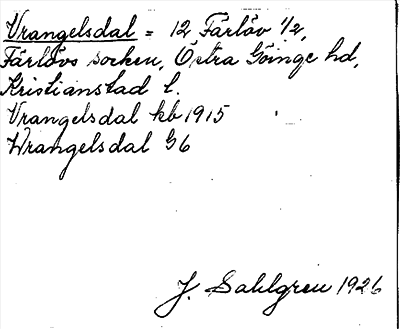 Vrangelsdal = 12 Färlöv 1/2,
Färlövs socken, Östra Göinge hd,
Kristianstad l.
Vrangelsdal kb 1915
Wrangelsdal G6
J. Sahlgren 1926